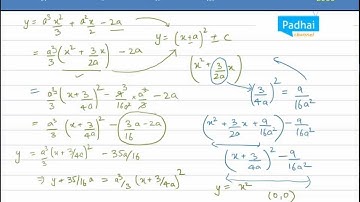 y = a³x²/3 + a²x/2 - 2a
y = (x±a)² ± c
Padhai
= a³/3 (x² + 3/2a x) - 2a
(x² + 3/2a x)
= a³/3 (x + 3/4a)² - 9/16a² × a³/3 - 2a
(3/4a)² = 9/16a²
= a³/3 (x + 3/4a)² - 3a/16 - 2a
(x² + 3/2a x + 9/16a²) - 9/16a²
y = a³/3 (x + 3/4a)² - 35a/16
(x + 3/4a)² - 9/16a²
⇒ y + 35/16 a = a³/3 (x + 3/4a)²
y = x² (0,0)